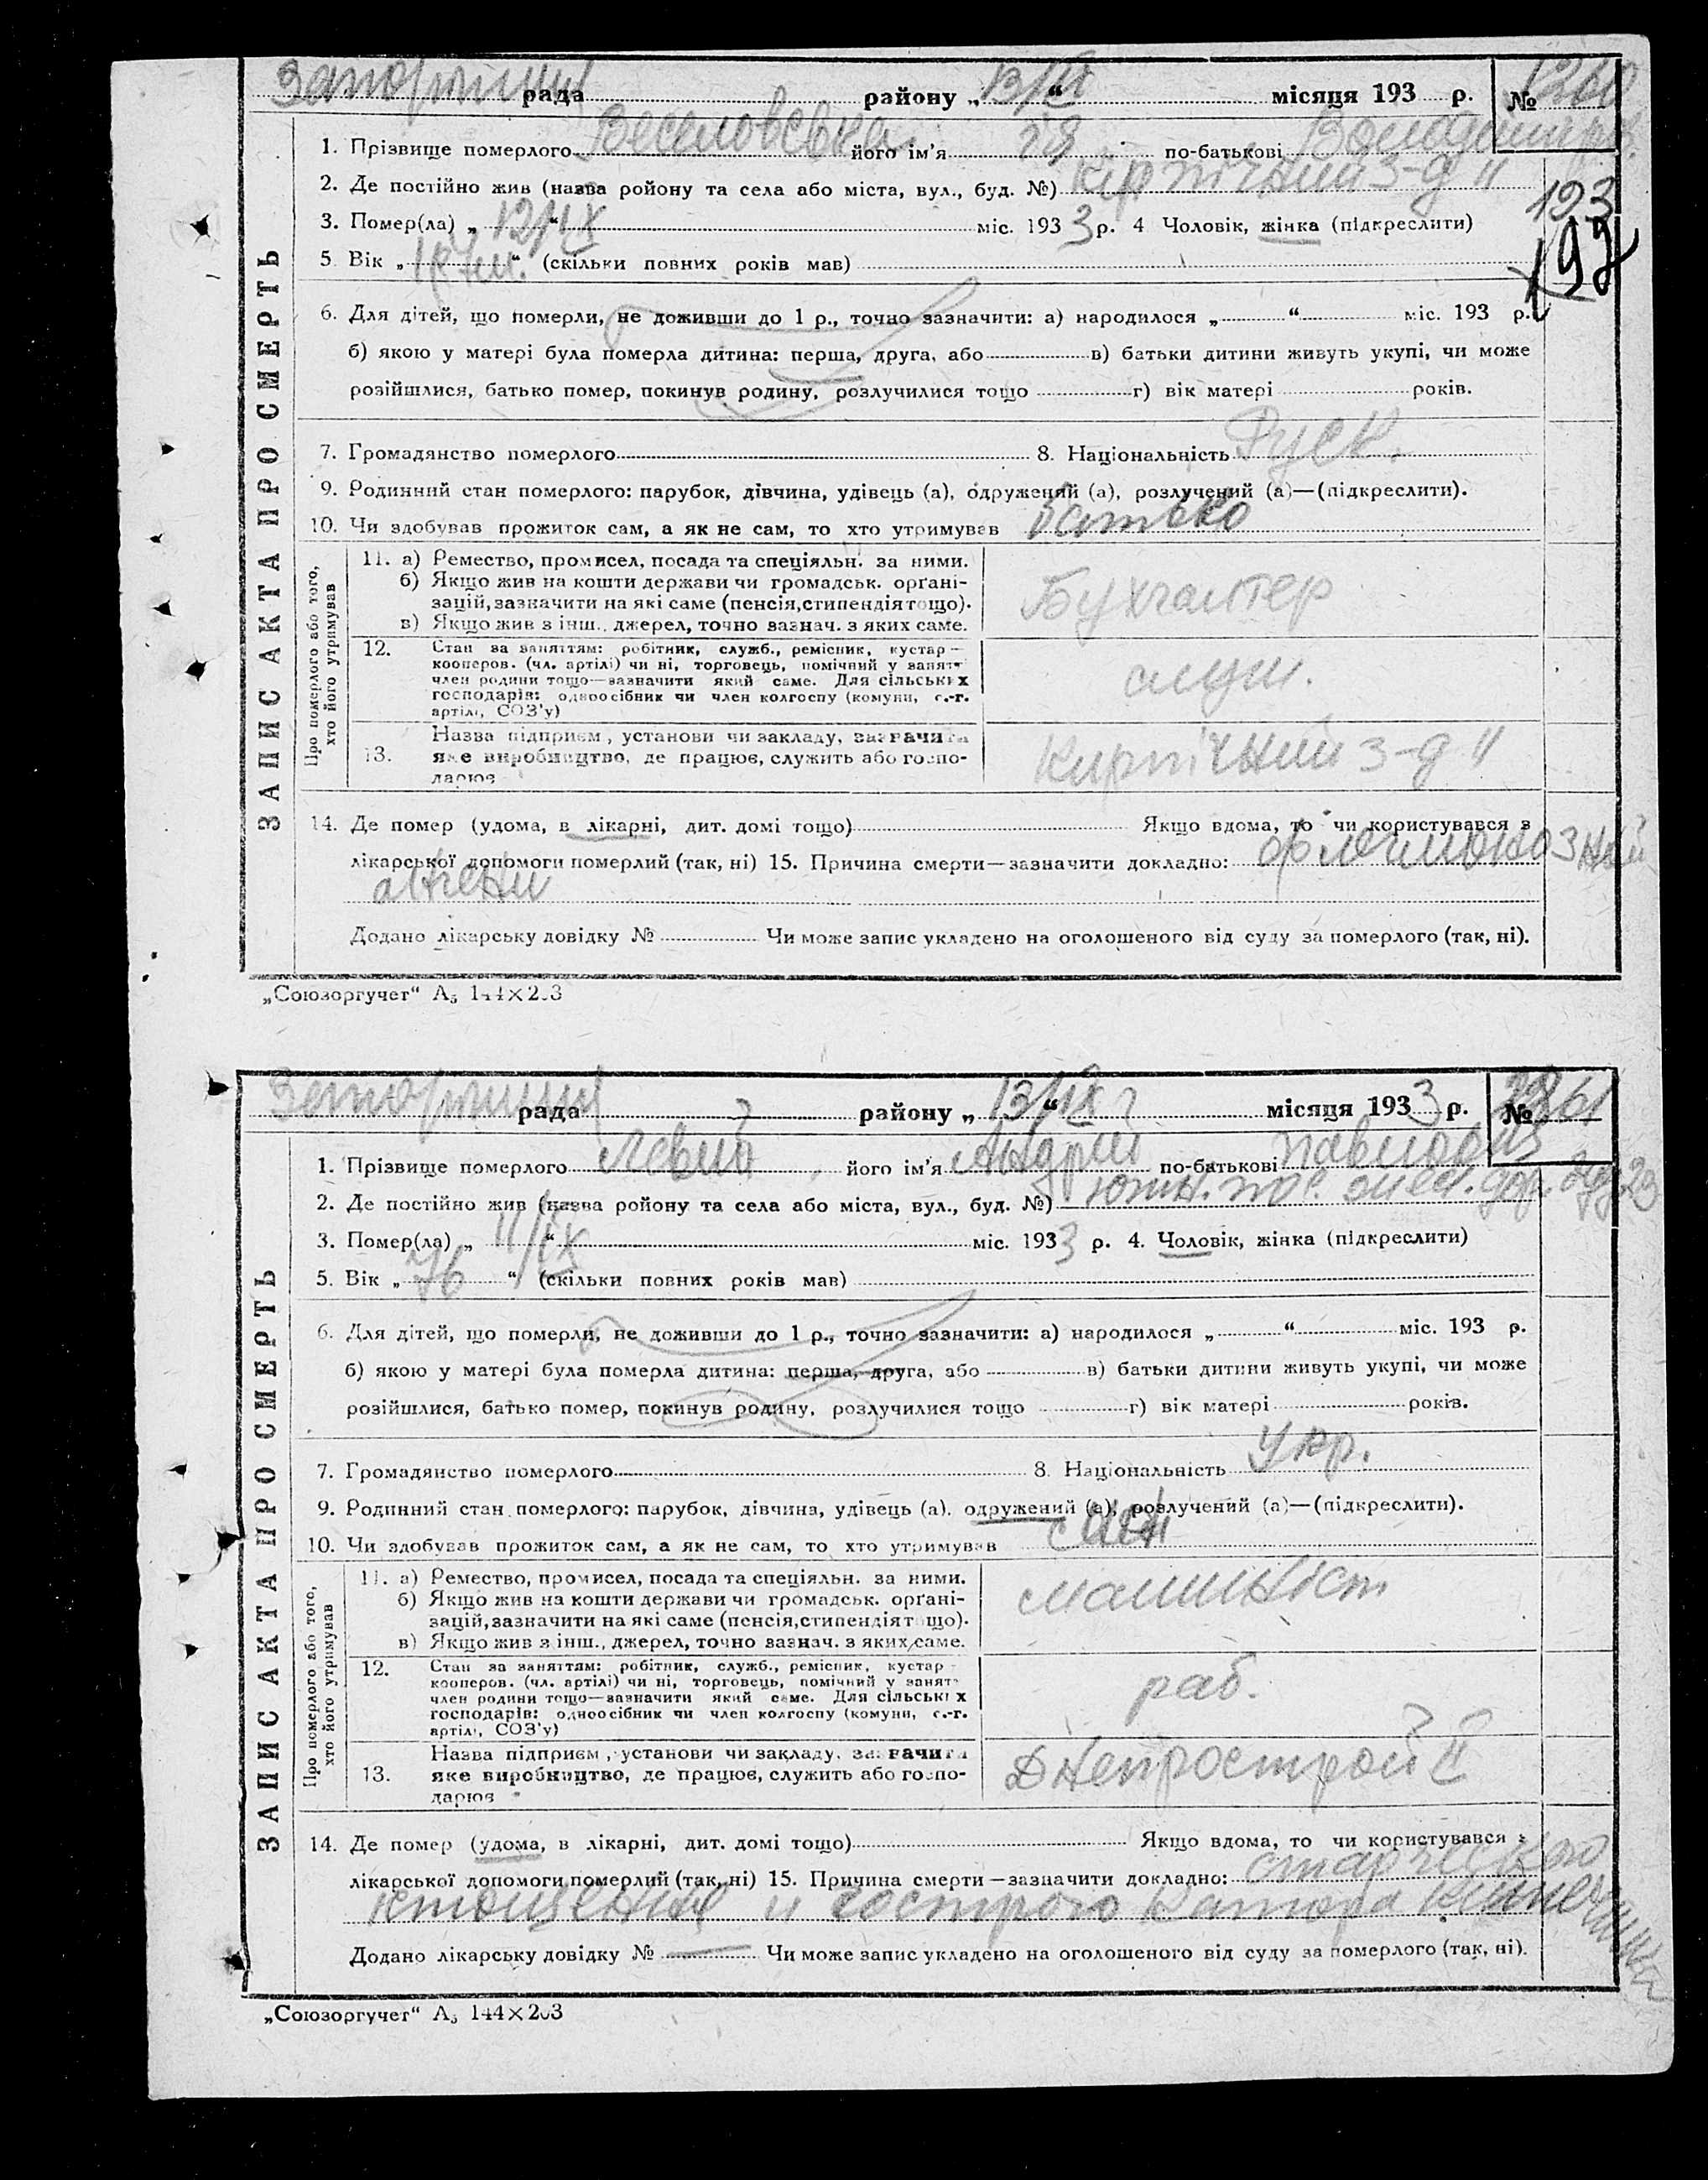 Запоріжжя рада району „13/IX“ місяця 193 р. № 1260
ЗАПИС АКТА ПРО СМЕРТЬ
1. Прізвище померлого Веселовська його ім'я по-батькові Володимиров.
2. Де постійно жив (назва ройону та села або міста, вул., буд. №) Кірпічний з-д "
3. Помер(ла) „12/IX“ міс. 1933 р. 4 Чоловік, жінка (підкреслити)
193
197
5. Вік „1р 7м.“ (скільки повних років мав)
6. Для дітей, що померли, не доживши до 1 р., точно зазначити: а) народилося „ “ міс. 193 р.
б) якою у матері була померла дитина: перша, друга, або в) батьки дитини живуть укупі, чи може
розійшлися, батько помер, покинув родину, розлучилися тощо г) вік матері років.
7. Громадянство померлого 8. Національність Руск.
9. Родинний стан померлого: парубок, дівчина, удівець (а), одружений (а), розлучений (а)—(підкреслити).
10. Чи здобував прожиток сам, а як не сам, то хто утримував батько
Про померлого або того,
хто його утримував
11. а) Ремество, промисел, посада та спеціяльн. за ними.
б) Якщо жив на кошти держави чи громадськ. орґані-
зацій, зазначити на які саме (пенсія, стипендія тощо).
в) Якщо жив з інш. джерел, точно зазнач. з яких саме.
Бухгалтер
12. Стан за заняттям: робітник, служб., ремісник, кустар —
кооперов. (чл. артілі) чи ні, торговець, помічний у занят-
член родини тощо—зазначити який саме. Для сільських
господарів: одноосібник чи член колгоспу (комуни, с.-г.
артілі, СОЗ'у)
служ.
13. Назва підприєм, установи чи закладу, зазначити
яке виробництво, де працює, служить або госпо-
дарює
Кирпічний з-д "
14. Де помер (удома, в лікарні, дит. домі тощо) Якщо вдома, то чи користувався з
лікарської допомоги померлий (так, ні) 15. Причина смерти—зазначити докладно: флегмонозний
ангени
Додано лікарську довідку № Чи може запис укладено на оголошеного від суду за померлого (так, ні).
„Союзоргучет“ А₅ 144×203
Запоріжжя рада району „13/IX“ місяця 1933 р. № 1261
ЗАПИС АКТА ПРО СМЕРТЬ
1. Прізвище померлого Левий його ім'я Андрій по-батькові Павлович
2. Де постійно жив (назва ройону та села або міста, вул., буд. №) южн. пос. 23
3. Помер(ла) „11/IX“ міс. 1933 р. 4. Чоловік, жінка (підкреслити)
5. Вік „76“ (скільки повних років мав)
6. Для дітей, що померли, не доживши до 1 р., точно зазначити: а) народилося „ “ міс. 193 р.
б) якою у матері була померла дитина: перша, друга, або в) батьки дитини живуть укупі, чи може
розійшлися, батько помер, покинув родину, розлучилися тощо г) вік матері років.
7. Громадянство померлого 8. Національність Укр.
9. Родинний стан померлого: парубок, дівчина, удівець (а), одружений (а), розлучений (а)—(підкреслити).
10. Чи здобував прожиток сам, а як не сам, то хто утримував
Про померлого або того,
хто його утримував
11. а) Ремество, промисел, посада та спеціяльн. за ними.
б) Якщо жив на кошти держави чи громадськ. орґані-
зацій, зазначити на які саме (пенсія, стипендія тощо).
в) Якщо жив з інш., джерел, точно зазнач. з яких саме.
машиніст
12. Стан за заняттям: робітник, служб., ремісник, кустар -
кооперов. (чл. артілі) чи ні, торговець, помічний у занят-
член родини тощо—зазначити який саме. Для сільських
господарів: одноосібник чи член колгоспу (комуни, с.-г.
артілі, СОЗ'у)
раб.
13. Назва підприєм, установи чи закладу, зазначити
яке виробництво, де працює, служить або госпо-
дарює
Днепрострой "
14. Де помер (удома, в лікарні, дит. домі тощо) Якщо вдома, то чи користувався з
лікарської допомоги померлий (так, ні) 15. Причина смерти—зазначити докладно: старческого
истощения и гострого катара кишечника
Додано лікарську довідку № — Чи може запис укладено на оголошеного від суду за померлого (так, ні).
„Союзоргучет“ А₅ 144×203